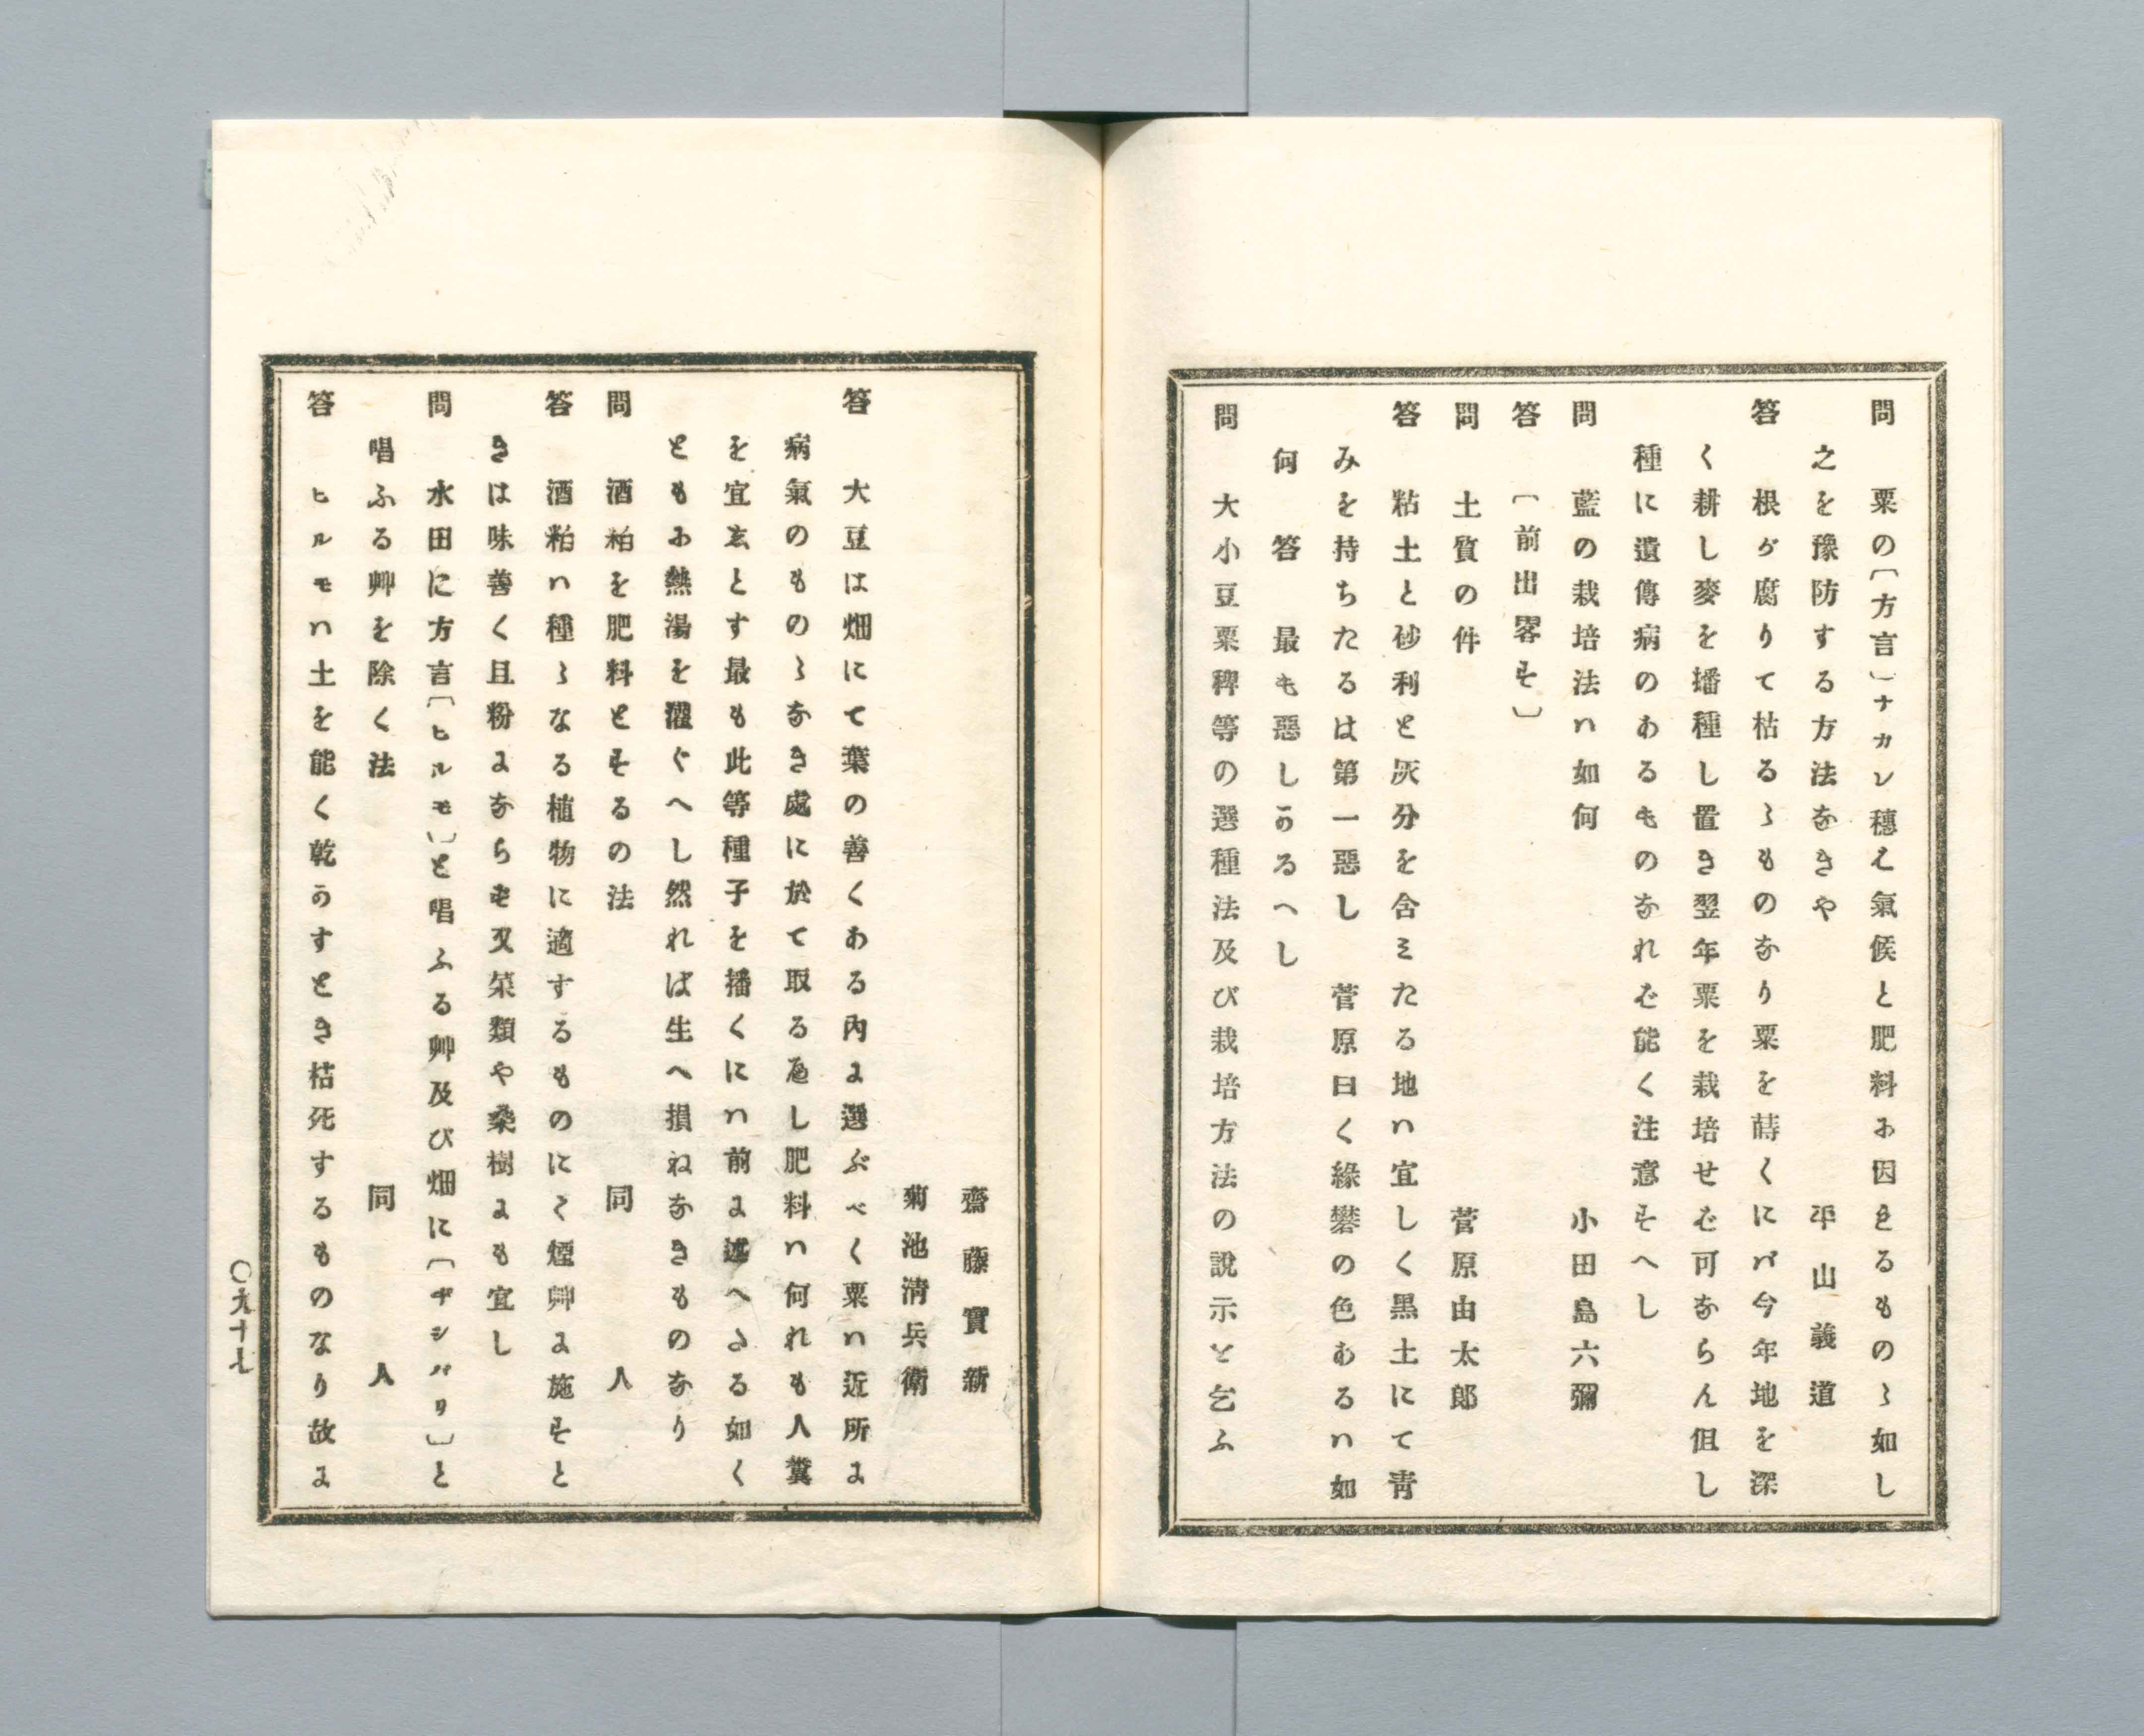 問　粟の〔方言〕ナカレ穗ハ氣候と肥料に因するものゝ如し
之を豫防する方法なきや　　平山義道
答　根が腐りて枯るゝものなり粟を蒔くにバ今年地を深
く耕し麥を播種し置き翌年粟を栽培せば可ならん但し
種に遺傳病のあるものなれば能く注意すへし
問　藍の栽培法ハ如何　　小田島六彌
答　〔前出畧す〕
問　土質の件　　菅原由太郎
答　粘土と砂利と灰分を含ミたる地ハ宜しく黒土にて靑
みを持ちたるは第一惡し　菅原曰く緣礬の色あるハ如
何　答　最も惡しかるへし
問　大小豆粟稗等の選種法及び栽培方法の說示を乞ふ
齋藤實新
菊池淸兵衛
答　大豆は畑にて葉の善くある內に選ぶべく粟ハ近所に
病氣のものゝなき處に於て取る可し肥料ハ何れも人糞
を宜ゑとす最も此等種子を播くにハ前に述へたる如く
ともに熱湯を灌ぐへし然れば生へ損ねなきものなり
問　酒粕を肥料とするの法　　同　人
答　酒粕ハ種ゝなる植物に適するものにて煙艸に施すと
きは味善く且粉にならず又菜類や桑樹にも宜し
問　水田に方言〔ヒルモ〕と唱ふる艸及び畑に〔ヂシバリ〕と
唱ふる艸を除く法　　同　人
答　ヒルモハ土を能く乾かすとき枯死するものなり故に
〇九十七